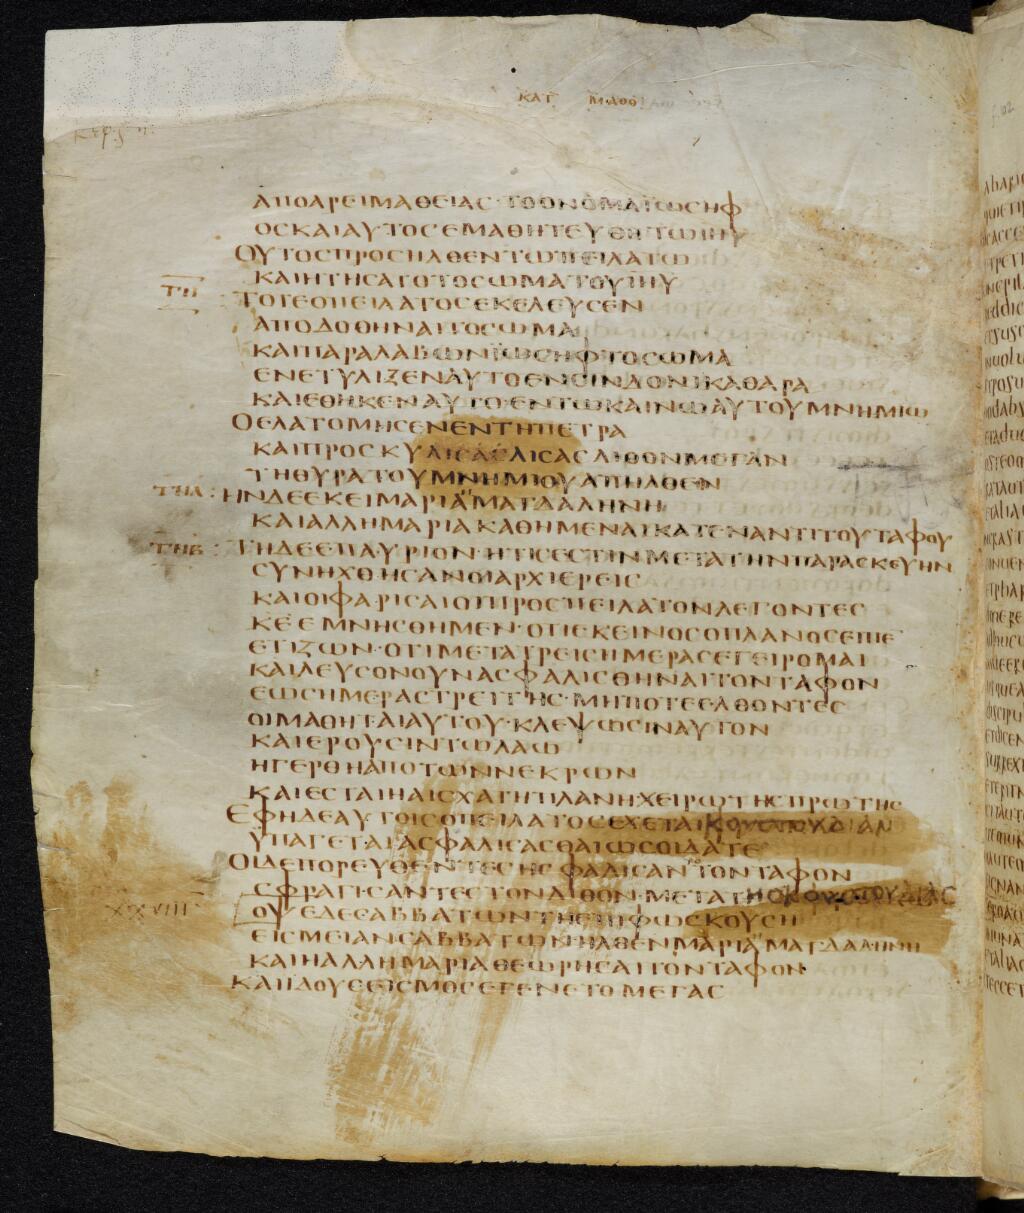 ΚΑΤ ΜΑΘΘ
ΑΠΟΑΡΕΙΜΑΘΕΙΑΣ·ΤΟΟΝΟΜΑΙΩΣΗΦ
ΟΣΚΑΙΑΥΤΟΣΕΜΑΘΗΤΕΥΘΗΤΩΙΗΥ
ΟΥΤΟΣΠΡΟΣΗΛΘΕΝΤΩΠΕΙΛΑΤΩ
ΚΑΙΗΤΗΣΑΤΟΤΟΣΩΜΑΤΟΥΙΗΥ
ΤΟΤΕΟΠΕΙΛΑΤΟΣΕΚΕΛΕΥΣΕΝ
ΑΠΟΔΟΘΗΝΑΙΤΟΣΩΜΑ
ΚΑΙΠΑΡΑΛΑΒΩΝΙΩΣΗΦΤΟΣΩΜΑ
ΕΝΕΤΥΛΙΖΕΝΑΥΤΟΕΝΣΙΝΔΟΝΙΚΑΘΑΡΑ
ΚΑΙΕΘΗΚΕΝΑΥΤΟΕΝΤΩΚΑΙΝΩΑΥΤΟΥΜΝΗΜΙΩ
ΟΕΛΑΤΟΜΗΣΕΝΕΝΤΗΠΕΤΡΑ
ΚΑΙΠΡΟΣΚΥΛΙΣΑΣΛΙΘΟΝΜΕΓΑΝ
ΤΗΘΥΡΑΤΟΥΜΝΗΜΙΟΥΑΠΗΛΘΕΝ
ΤΠΑ: ΗΝΔΕΕΚΕΙΜΑΡΙΑΜΑΓΔΑΛΗΝΗ
ΚΑΙΑΛΛΗΜΑΡΙΑΚΑΘΗΜΕΝΑΙΚΑΤΕΝΑΝΤΙΤΟΥΤΑΦΟΥ
ΤΠΒ: ΤΗΔΕΕΠΑΥΡΙΟΝ·ΗΤΙΣΕΣΤΙΝΜΕΤΑΤΗΝΠΑΡΑΣΚΕΥΗΝ
ΣΥΝΗΧΘΗΣΑΝΟΙΑΡΧΙΕΡΕΙΣ
ΚΑΙΟΙΦΑΡΙΣΑΙΟΙΠΡΟΣΠΕΙΛΑΤΟΝΛΕΓΟΝΤΕΣ
ΚΕΕΜΝΗΣΘΗΜΕΝ·ΟΤΙΕΚΕΙΝΟΣΟΠΛΑΝΟΣΕΙΠΕ
ΕΤΙΖΩΝ·ΟΤΙΜΕΤΑΤΡΕΙΣΗΜΕΡΑΣΕΓΕΙΡΟΜΑΙ
ΚΑΙΛΕΥΣΟΝΟΥΝΑΣΦΑΛΙΣΘΗΝΑΙΤΟΝΤΑΦΟΝ
ΕΩΣΗΜΕΡΑΣΤΡΕΙΤΗΣ·ΜΗΠΟΤΕΕΛΘΟΝΤΕΣ
ΟΙΜΑΘΗΤΑΙΑΥΤΟΥ·ΚΛΕΨΩΣΙΝΑΥΤΟΝ
ΚΑΙΕΡΟΥΣΙΝΤΩΛΑΩ
ΗΓΕΡΘΗΑΠΟΤΩΝΝΕΚΡΩΝ
ΚΑΙΕΣΤΑΙΗΑΙΣΧΑΤΗΠΛΑΝΗΧΕΙΡΩΤΗΣΠΡΩΤΗΣ
ΕΦΗΔΕΑΥΤΟΙΣΟΠΕΙΛΑΤΟΣΕΧΕΤΑΙΚΟΥΣΤΟΥΔΙΑΝ
ΥΠΑΓΕΤΑΙΑΣΦΑΛΙΣΑΣΘΑΙΩΣΟΙΔΑΤΕ
ΟΙΔΕΠΟΡΕΥΘΕΝΤΕΣΗΣΦΑΛΙΣΑΝΤΟΝΤΑΦΟΝ
ΣΦΡΑΓΙΣΑΝΤΕΣΤΟΝΛΙΘΟΝ·ΜΕΤΑΤΗΣΚΟΥΣΤΟΥΔΙΑΣ
XXVIII ΟΨΕΔΕΣΑΒΒΑΤΩΝΤΗΕΠΙΦΩΣΚΟΥΣΗ
ΕΙΣΜΕΙΑΝΣΑΒΒΑΤΩΝ·ΗΛΘΕΝΜΑΡΙΑΜΑΓΔΑΛΗΝΗ
ΚΑΙΗΑΛΛΗΜΑΡΙΑΘΕΩΡΗΣΑΙΤΟΝΤΑΦΟΝ
ΚΑΙΙΔΟΥΣΕΙΣΜΟΣΕΓΕΝΕΤΟΜΕΓΑΣ